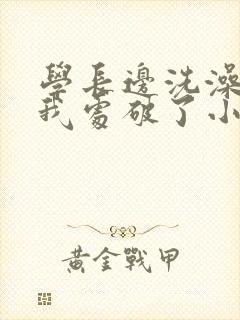 學長邊洗澡
我處破了小
黃金戰甲